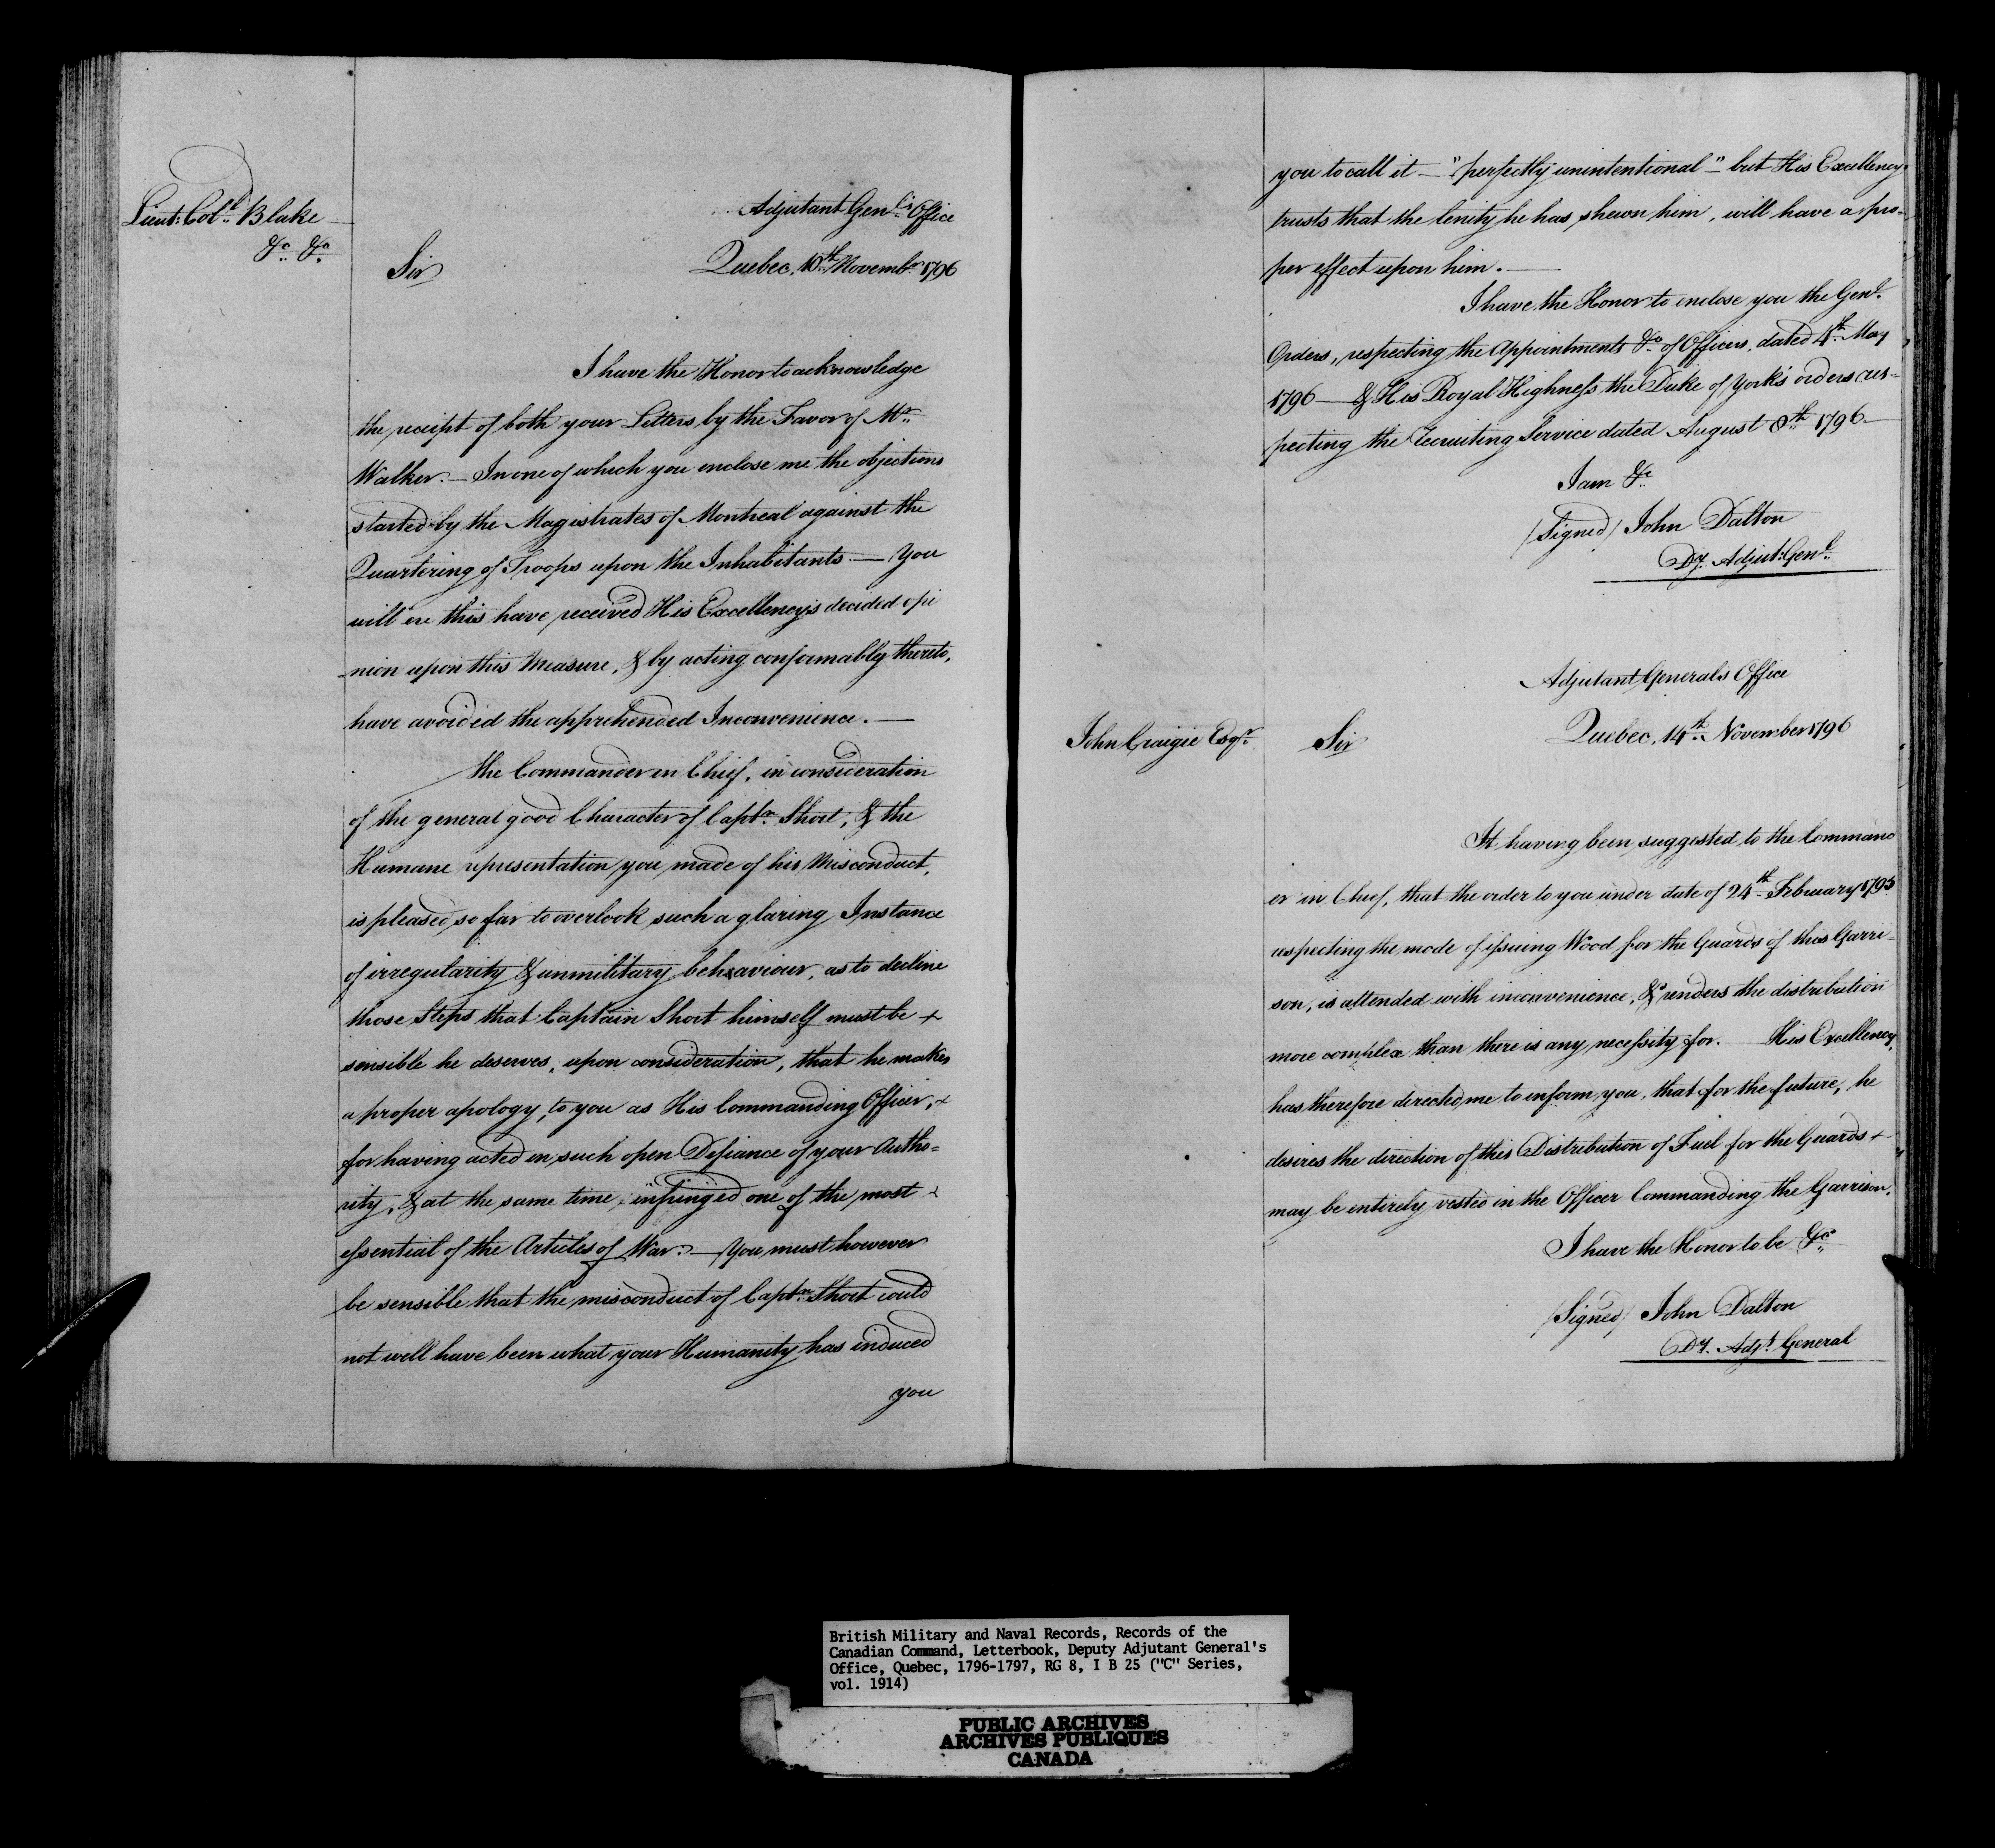 Lieut: Col.l Blake
&c. &c.
Adjutant Gen.l's Office
Quebec, 10th Novembr. 1796
Sir
I have the Honor to acknowledge
the receipt of both your Letters by the Favor of Mr.
Walker. — In one of which you enclose me the objections
started by the Magistrates of Montreal against the
Quartering of Troops upon the Inhabitants — You
will ere this have received His Excellency's decided opi
nion upon this Measure, & by acting conformably thereto,
have avoided the apprehended Inconvenience. —
The Commander in Chief, in consideration
of the general good Character of Captn. Short, & the
Humane representation you made of his Misconduct,
is pleased so far to overlook such a glaring Instance
of irregularity & unmilitary behaviour, as to decline
those Steps that Captain Short himself must be +
sensible he deserves, upon consideration, that he makes
a proper apology, to you as His Commanding Officer, +
for having acted in such open Defiance of your Autho=
rity, & at the same time infringed one of the most +
essential of the Articles of War. — You must however
be sensible that the misconduct of Captn. Short could
not well have been what your Humanity has induced
you
you to call it — "perfectly unintentional" — but His Excellency
trusts that the lenity he has shewn him, will have a pro=
per effect upon him. —
I have the Honor to enclose you the Genl.
Orders, respecting the Appointments &c. of Officers, dated 4th. May
1796 — & His Royal Highness the Duke of York's orders res=
pecting the Recruiting Service dated August 8th. 1796 —
I am &c.
/Signed/ John Dalton
Dy. Adjut: Genl.
Adjutant General's Office
Quebec, 14th. November 1796
John Craigie Esqr.
Sir
It having been suggested to the Command
er in Chief, that the order to you under date of 24th. February 1795
respecting the mode of issuing Wood for the Guards of this Garri=
son, is attended with inconvenience, & renders the distribution
more complex than there is any necessity for. — His Excellency,
has therefore directed me to inform you, that for the future, he
desires the direction of this Distribution of Fuel for the Guards +
may be entirely vested in the Officer Commanding the Garrison.
I have the Honor to be &c.
/Signed/ John Dalton
Dy. Adjt. General
British Military and Naval Records, Records of the
Canadian Command, Letterbook, Deputy Adjutant General's
Office, Quebec, 1796-1797, RG 8, I B 25 ("C" Series,
vol. 1914)
PUBLIC ARCHIVES
ARCHIVES PUBLIQUES
CANADA